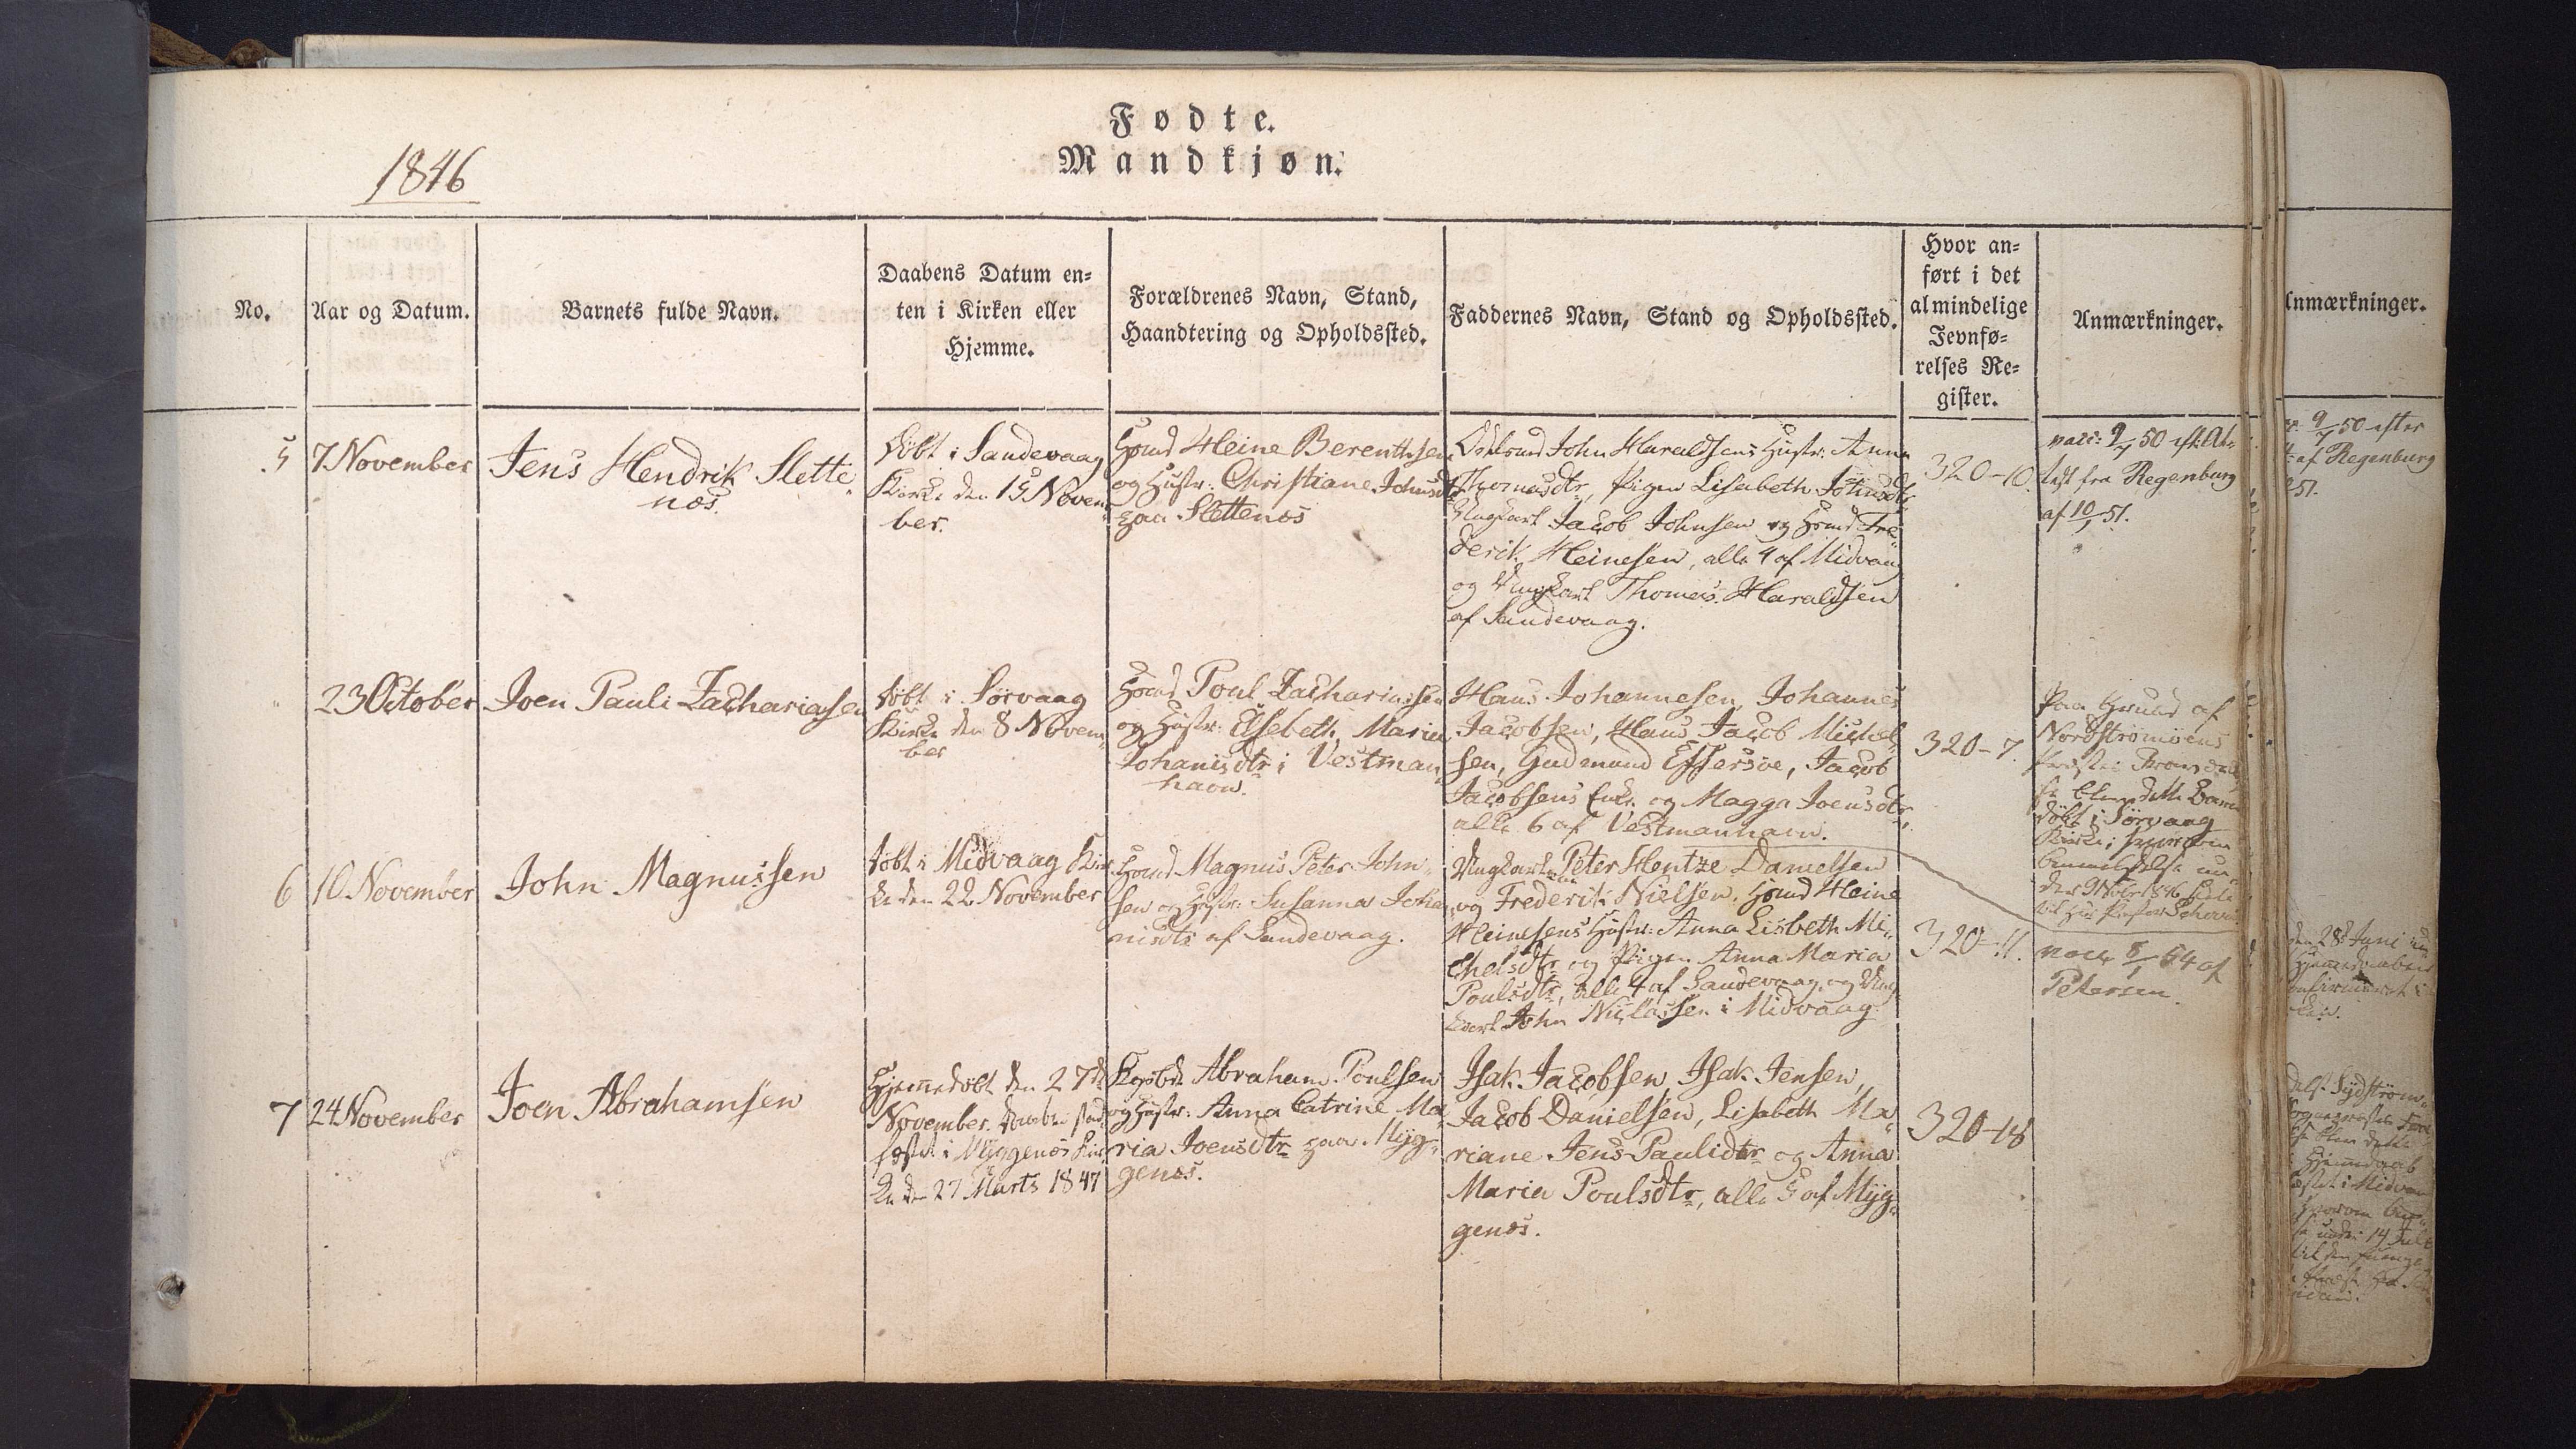 Fødte.
Mandkjøn.
1846
No.
Aar og Datum.
Barnets fulde Navn.
Daabens Datum en=
ten i Kirken eller
Hjemme.
Forældrenes Navn, Stand,
Haandtering og Opholdssted.
Faddernes Navn, Stand og Opholdssted.
Hvor an=
ført i det
almindelige
Jevnfø=
relses Re=
gister.
Anmærkninger.
5
7 November
Jens Hendrik Slette
næs.
Døbt i Sandevaag
Kirke den 15 Novem
ber.
Hmd Heine Berenthsen
og Hustr: Christiane Johnsdtr
paa Slettenæs
John Haraldsens Hustr: Anna
Thomasdtr, Pigen Lisabeth Johnsdtr
Ungkarl Jacob Johnsen og Hmd Fre
derik Heinesen, alle 4 af Midvaag
og Ungkarl Thomas Haraldsen
af Sandevaag.
320-10.
vacc: 9/7 50 eft: At=
test fra Regenburg
af 10/1 51.
23 October
Joen Pauli Zachariasen
Døbt i Sørvaag
Kirke den 8 Novem
ber
Hmd Poul Zachariassen
og Hustr: Elsebeth Maria
Johanisdtr i Vestman
havn.
Hans Johannesen, Johannes
Jacobsen, Hans Jacob Michel
sen, Gudmund Effersøe, Jacob
Jacobsens Enke og Magga Joensdtr,
alle 6 af Vestmanhavn.
320-7.
Paa Grund af
Nordstrømøens
blev dette Barn
døbt i Sørvaag
Kirke, hvorom
Anmeldelse un
der 9 Nvbr 1846
6
10 November
John Magnussen
Døbt i Midvaag Kir
ke den 22 November
Hmd Magnus Peter John
sen og Hustr: Susanna Joha
nisdtr af Sandevaag.
Ungkarlene Peter Hentze Danielsen
og Frederik Nielsen, Hmd Heine
Heinesens Hustr: Anna Lisbeth Mi
chelsdtr og Pigen Anna Maria
Poulsdtr, alle 4 af Sandevaag, og Ung
karl John Niclassen i Midvaag.
320-11.
vacc. 8/1 54 af
Petersen.
7
24 November
Joen Abrahamsen
Hjemmedøbt den 27de
November. Daaben stad
fæstet i Myggenæs Kir
ke den 27 Marts 1847
Abraham Poulsen
og Hustr: Anna Catrine Ma
ria Joensdtr paa Myg
genæs.
Isak Jacobsen, Isak Jensen,
Jacob Danielsen, Lisabeth Ma
riane Jens Paulidtr og Anna
Maria Poulsdtr, alle 5 af Myg
genæs.
320-18
Anmærkninger.
9/7 50 efter
af Regenburg
51.
den 28 Juni
14 Juli